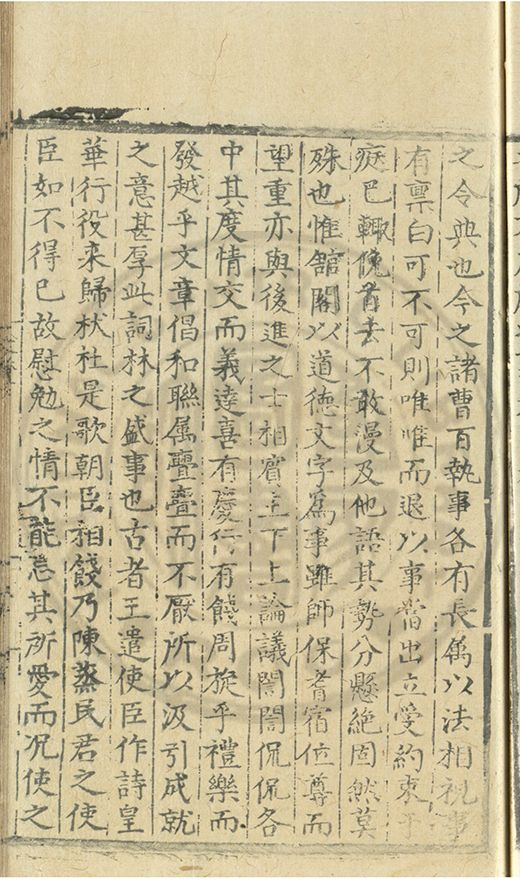 之令典也今之諸曹百執事各有長属以法相視事
有禀白可不可則唯唯而退以事當出立受約束于
庭已輙俛首去不敢漫及他語其勢分懸絶固然莫
殊也惟舘閣以道徳文字爲事雖師保耆宿位尊而
望重亦與後進之士相賓主下上論議誾誾侃侃各
中其度情交而義達喜有慶行有餞周旋乎禮樂而
發越乎文章倡和聯属亹亹而不厭所以汲引成就
之意甚厚此詞林之盛事也古者王遣使臣作詩皇
華行役来歸杕杜是歌朝臣相餞乃陳蒸民君之使
臣如不得已故慰勉之情不能忘其所愛而况使之